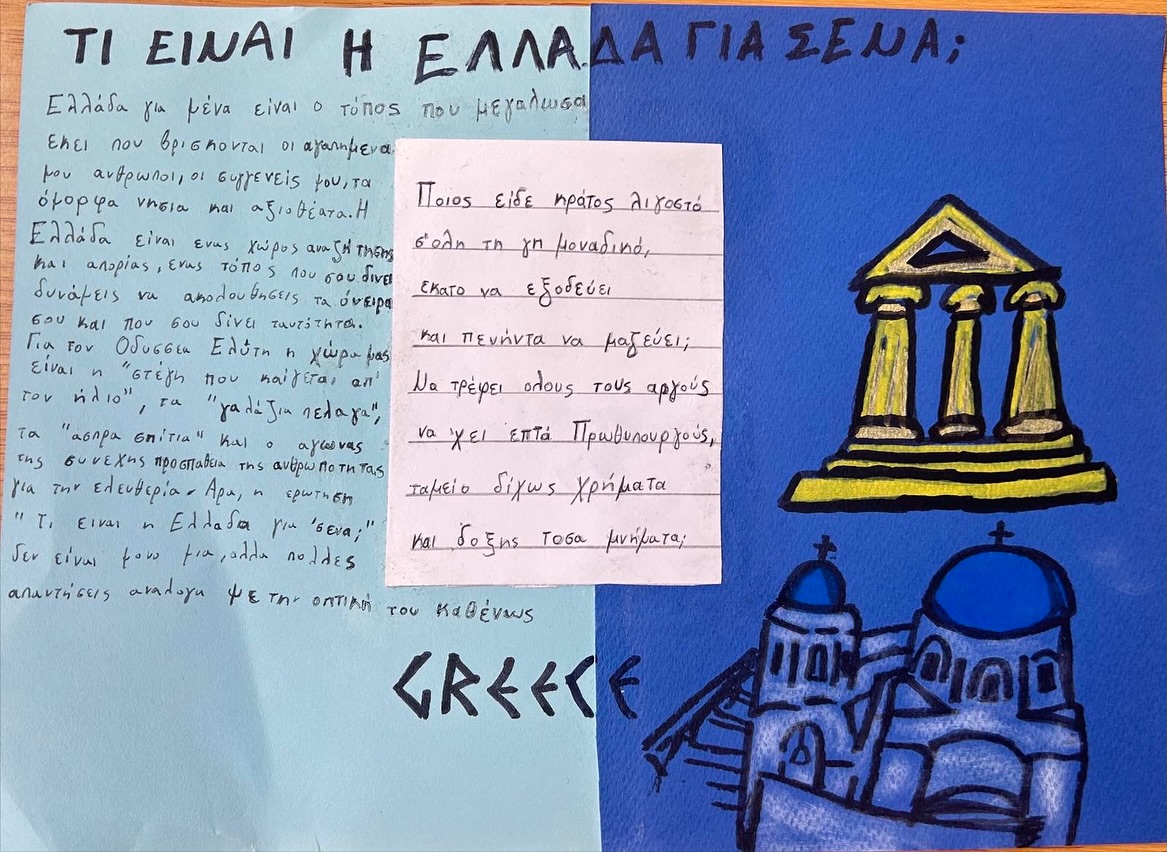 ΤΙ ΕΙΝΑΙ Η ΕΛΛΑΔΑ ΓΙΑ ΣΕΝΑ;
Ελλάδα για μένα είναι ο τόπος που μεγαλωσα
εκει που βρισκονται οι αγαπημενα
μου ανθρωποι, οι συγγενείς μου, τα
όμορφα νησια και αξιοθέατα. Η
Ελλάδα είναι ενας χώρος αναζήτησης
και απορίας, ενας τόπος που σου δινει
δυνάμεις να ακολουθησεις τα όνειρα
σου και που σου δίνει ταυτότητα.
Για τον Οδυσσεα Ελύτη η χώρα μας
είναι η "στέγη που καίγεται απ'
τον ήλιο", τα "γαλάζια πελαγα",
τα "ασπρα σπίτια" και ο αγωνας
της συνεχης προσπαθεια της ανθρωποτητας
για την ελευθερία. Αρα, η ερωτηση
"Τι ειναι η Ελλαδα για 'σενα;"
δεν είναι μονο μια, αλλα πολλες
απαντήσεις αναλογα με την οπτική του καθένως
Ποιος είδε κράτος λιγοστό
σ'ολη τη γη μοναδικό,
εκατο να εξοδεύει
και πενήντα να μαζεύει;
Να τρέφει ολους τους αργούς
να 'χει επτά Πρωθυπουργούς,
ταμείο δίχως χρήματα
και δοξης τοσα μνήματα;
GREECE